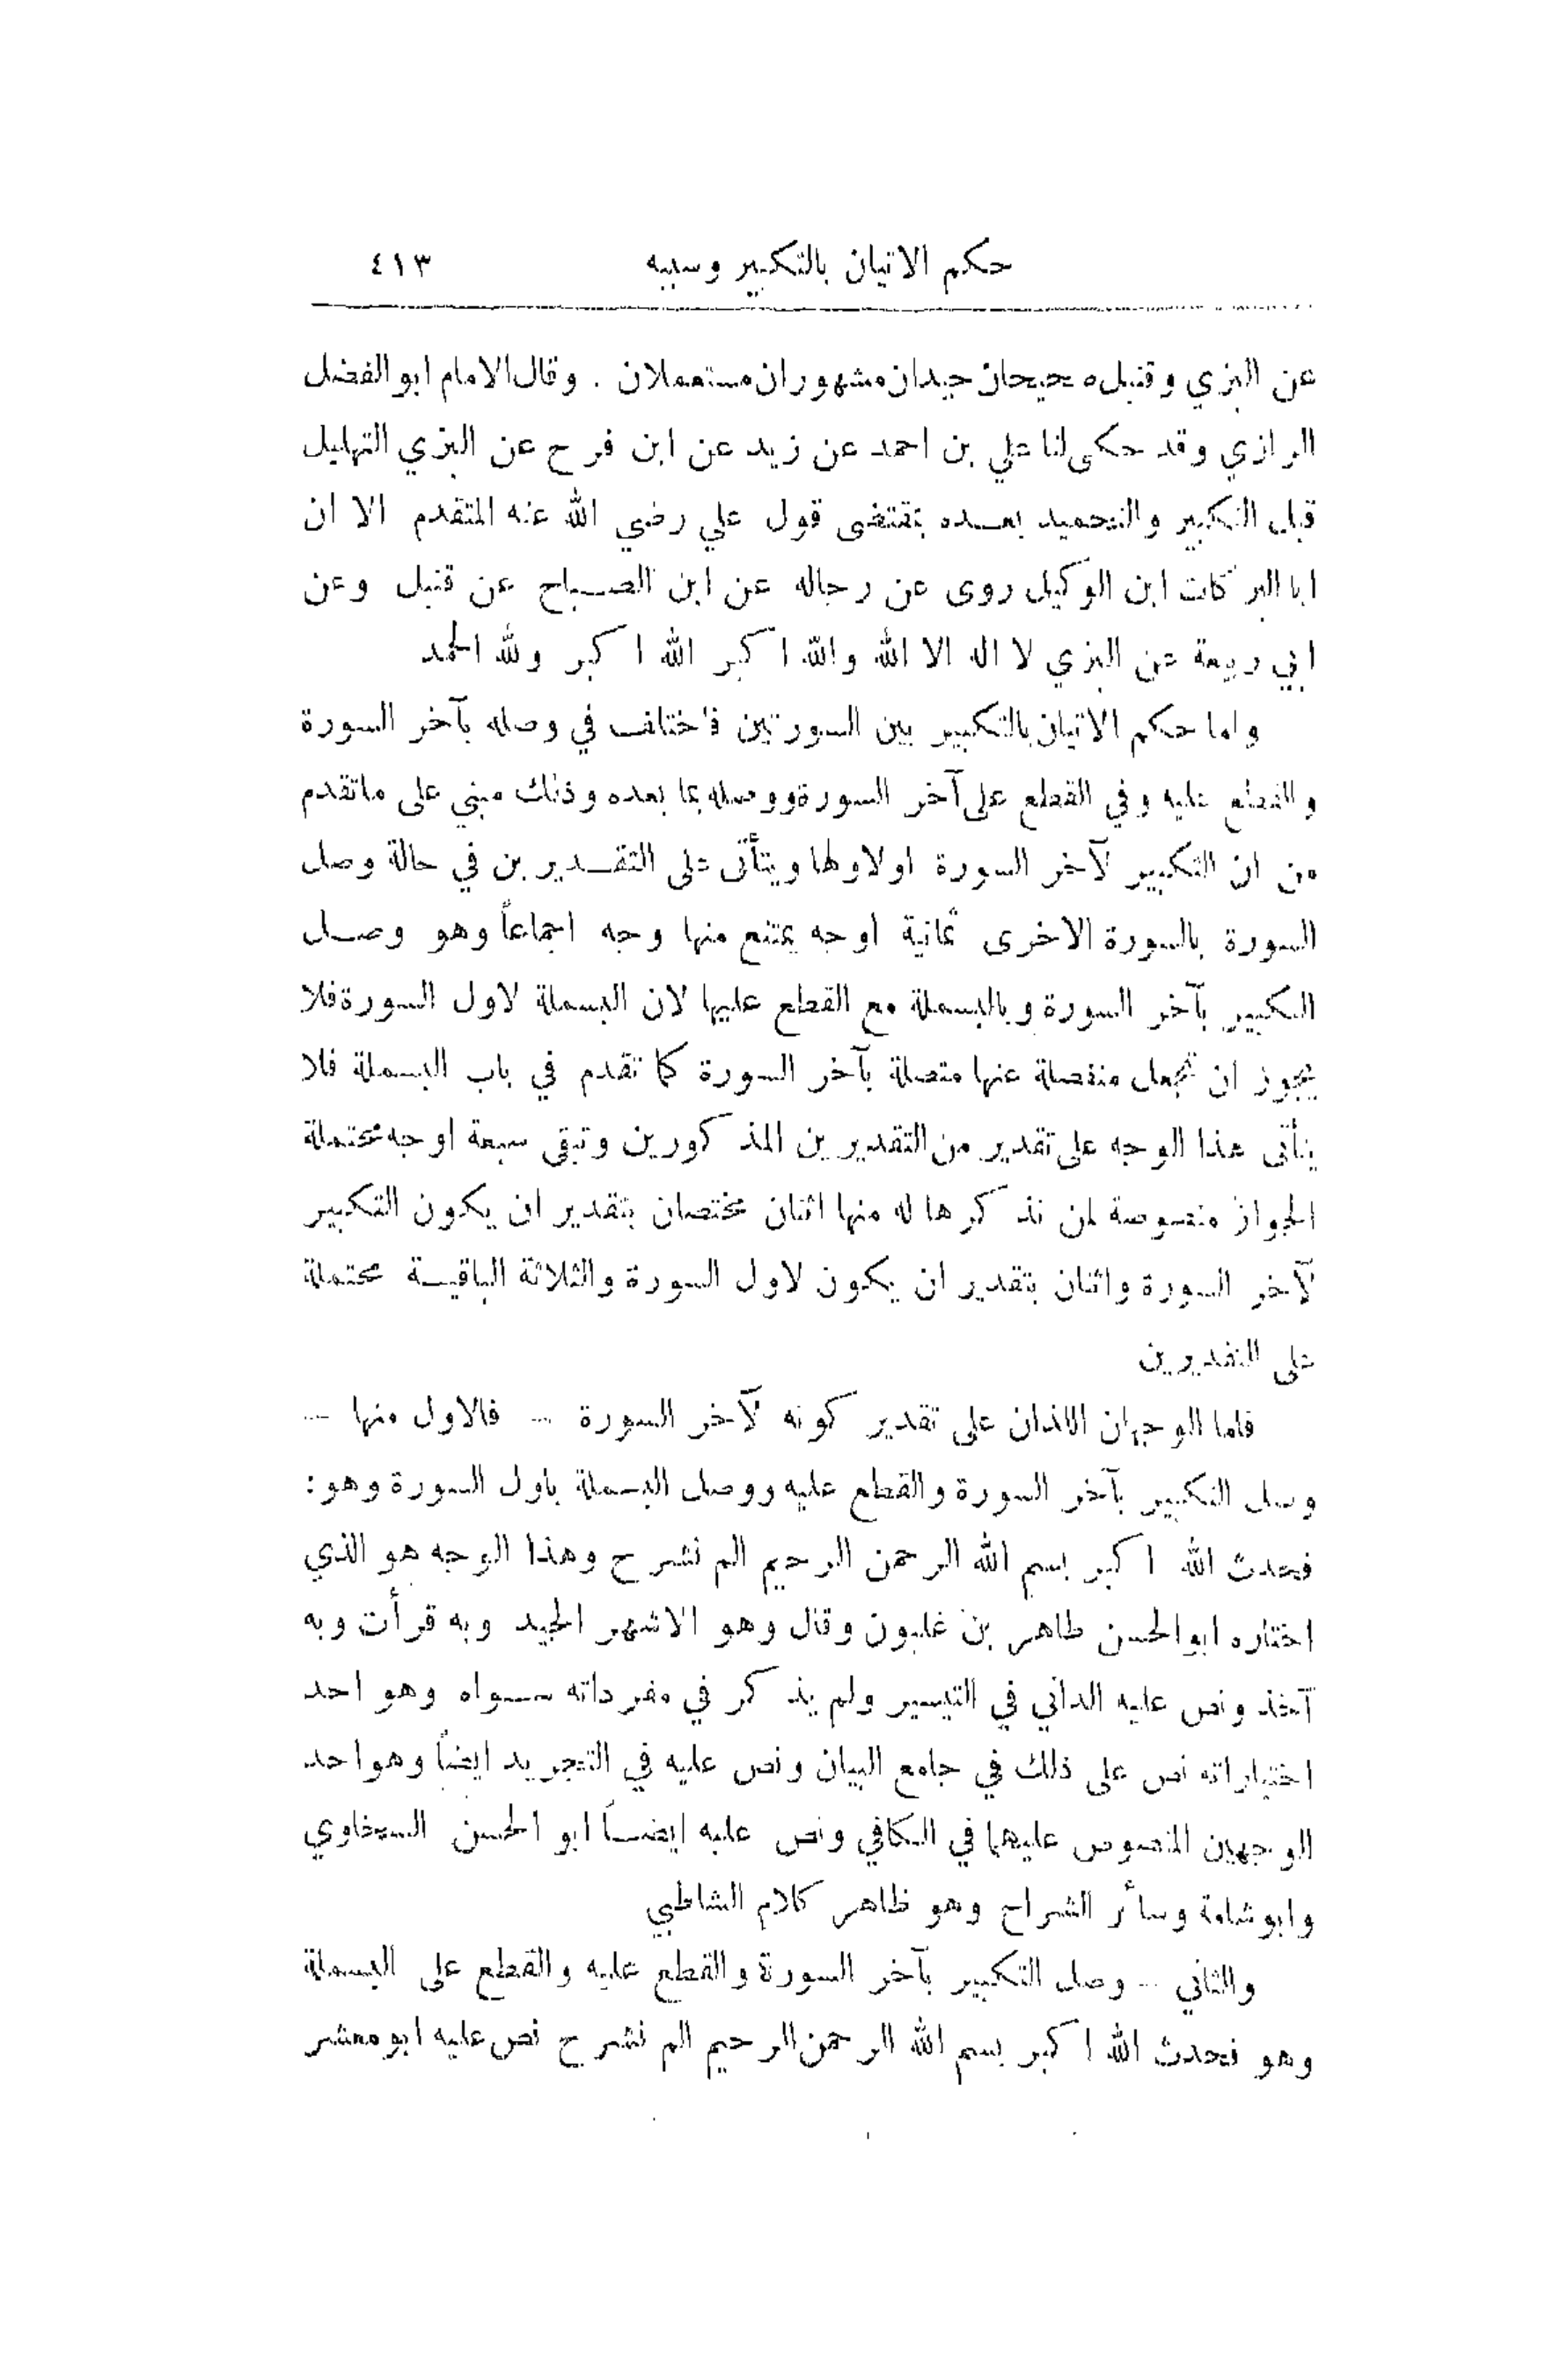 حكم الاتيان بالتكبير وسببه ٤١٣
عن البزي وقنبل صحيحان جيدان مشهوران مستعملان . وقال الامام ابو الفضل
الرازي وقد حكى لنا علي بن احمد عن زيد عن ابن فرح عن البزي التهليل
قبل التكبير والتحميد بعده بمقتضى قول علي رضي الله عنه المتقدم الا ان
ابا البركات ابن الوكيل روى عن رجاله عن ابن الصباح عن قنبل وعن
ابي ربيعة عن البزي لا اله الا الله والله اكبر الله اكبر ولله الحمد
واما حكم الاتيان بالتكبير بين السورتين فاختلف في وصله بآخر السورة
والقطع عليه وفي القطع على آخر السورة ووصله بما بعده وذلك مبني على ماتقدم
من ان التكبير لآخر السورة او لاولها ويتأتى على التقديرين في حالة وصل
السورة بالسورة الاخرى ثمانية اوجه يمتنع منها وجه اجماعاً وهو وصل
التكبير بآخر السورة وبالبسملة مع القطع عليها لان البسملة لاول السورة فلا
يجوز ان تجعل منفصلة عنها متصلة بآخر السورة كما تقدم في باب البسملة فلا
يتأتى هذا الوجه على تقدير من التقديرين المذكورين وتبقى سبعة اوجه محتملة
الجواز منصوصة لمن نذكرها له منها اثنان مختصان بتقدير ان يكون التكبير
لآخر السورة واثنان بتقدير ان يكون لاول السورة والثلاثة الباقية محتملة
على التقديرين
فاما الوجهان اللذان على تقدير كونه لآخر السورة – فالاول منها –
وصل التكبير بآخر السورة والقطع عليه ووصل البسملة باول السورة وهو:
فحدث الله اكبر بسم الله الرحمن الرحيم الم نشرح وهذا الوجه هو الذي
اختاره ابو الحسن طاهر بن غلبون وقال وهو الاشهر الجيد وبه قرأت وبه
آخذ ونص عليه الداني في التيسير ولم يذكر في مفرداته سواه وهو احد
اختياراته نص على ذلك في جامع البيان ونص عليه في التجريد ايضاً وهو احد
الوجهين المنصوص عليهما في الكافي ونص عليه ايضاً ابو الحسن السخاوي
وابو شامة وسائر الشراح وهو ظاهر كلام الشاطبي
والثاني – وصل التكبير بآخر السورة والقطع عليه والقطع على البسملة
وهو فحدث الله اكبر بسم الله الرحمن الرحيم الم نشرح نص عليه ابو معشر